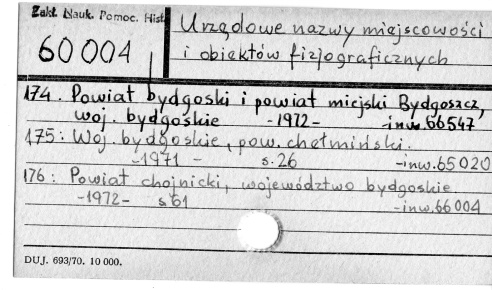 Zakł. Nauk. Pomoc. Hist.
60004
Urzędowe nazwy miejscowości
i obiektów fizjograficznych
174. Powiat bydgoski i powiat miejski Bydgoszcz,
woj. bydgoskie -1972- -inw.66547
175: Woj. bydgoskie, pow. chełmiński.
-1971- s.26 -inw.65020
176: Powiat chojnicki, województwo bydgoskie
-1972- s.61 -inw.66004
DUJ. 693/70. 10 000.